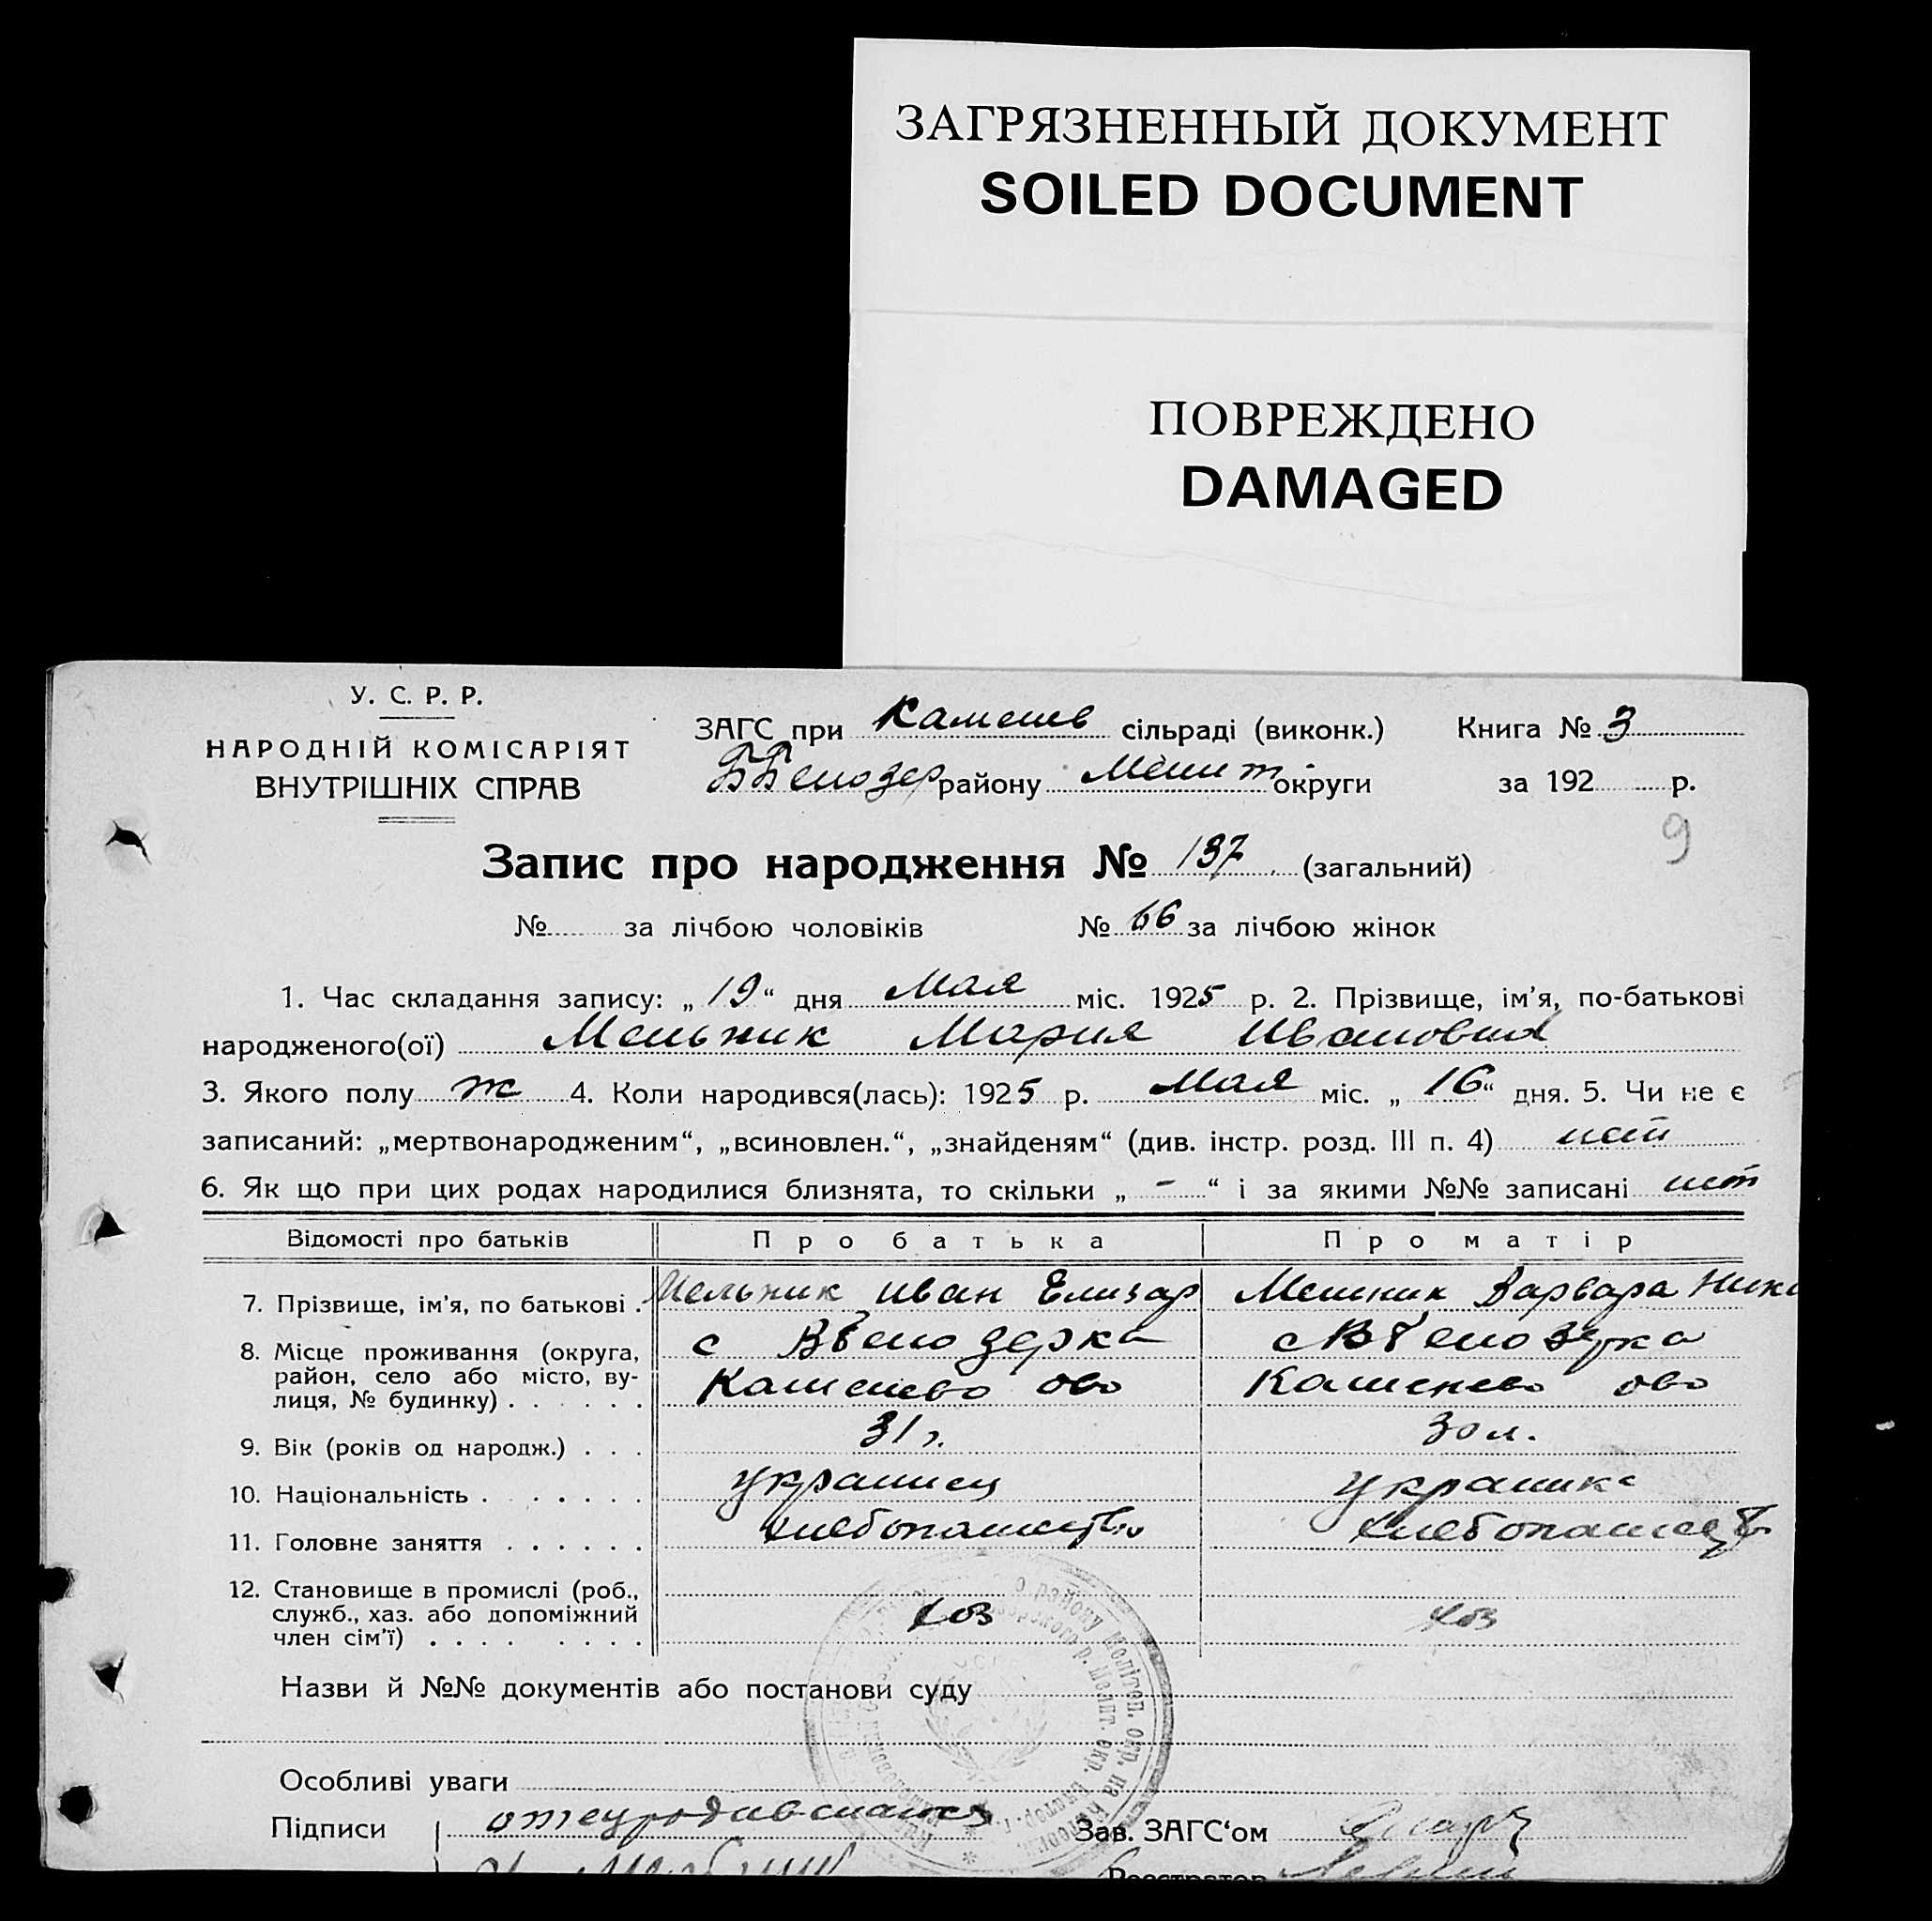 ЗАГРЯЗНЕННЫЙ ДОКУМЕНТ
SOILED DOCUMENT
ПОВРЕЖДЕНО
DAMAGED
У. С. Р. Р.
НАРОДНІЙ КОМІСАРІЯТ
ВНУТРІШНІХ СПРАВ
ЗАГС при Каменев сільраді (виконк.) Книга № 3
району Мелит округи за 192 р.
9
Запис про народження № 137 (загальний)
№ за лічбою чоловіків № 66 за лічбою жінок
1. Час складання запису: „19“ дня Мая міс. 1925 р. 2. Прізвище, ім’я, по-батькові
народженого(ої) Мельник Мария Ивановна
3. Якого полу ж 4. Коли народився(лась): 1925 р. Мая міс. „16“ дня. 5. Чи не є
записаний: „мертвонародженим“, „всиновлен.“, „знайденям“ (див. інстр. розд. III п. 4) нет
6. Як що при цих родах народилися близнята, то скільки „-“ і за якими №№ записані нет
Відомості про батьків Про батька Про матір
7. Прізвище, ім’я, по батькові . Мельник Иван Елизар Мельник Варвара Нико
8. Місце проживання (округа, с с
район, село або місто, ву-
лиця, № будинку) . . . . . .
9. Вік (років од народж.) . . . 31 г. 30 л.
10. Національність . . . . . . украинец украинка
11. Головне заняття . . . . . . хлебопашество хлебопашеств
12. Становище в промислі (роб.,
служб., хаз. або допоміжний хоз хоз
член сім’ї) . . . . . . . .
Назви й №№ документів або постанови суду
Особливі уваги
Підписи Зав. ЗАГС‘ом
Реєстратор